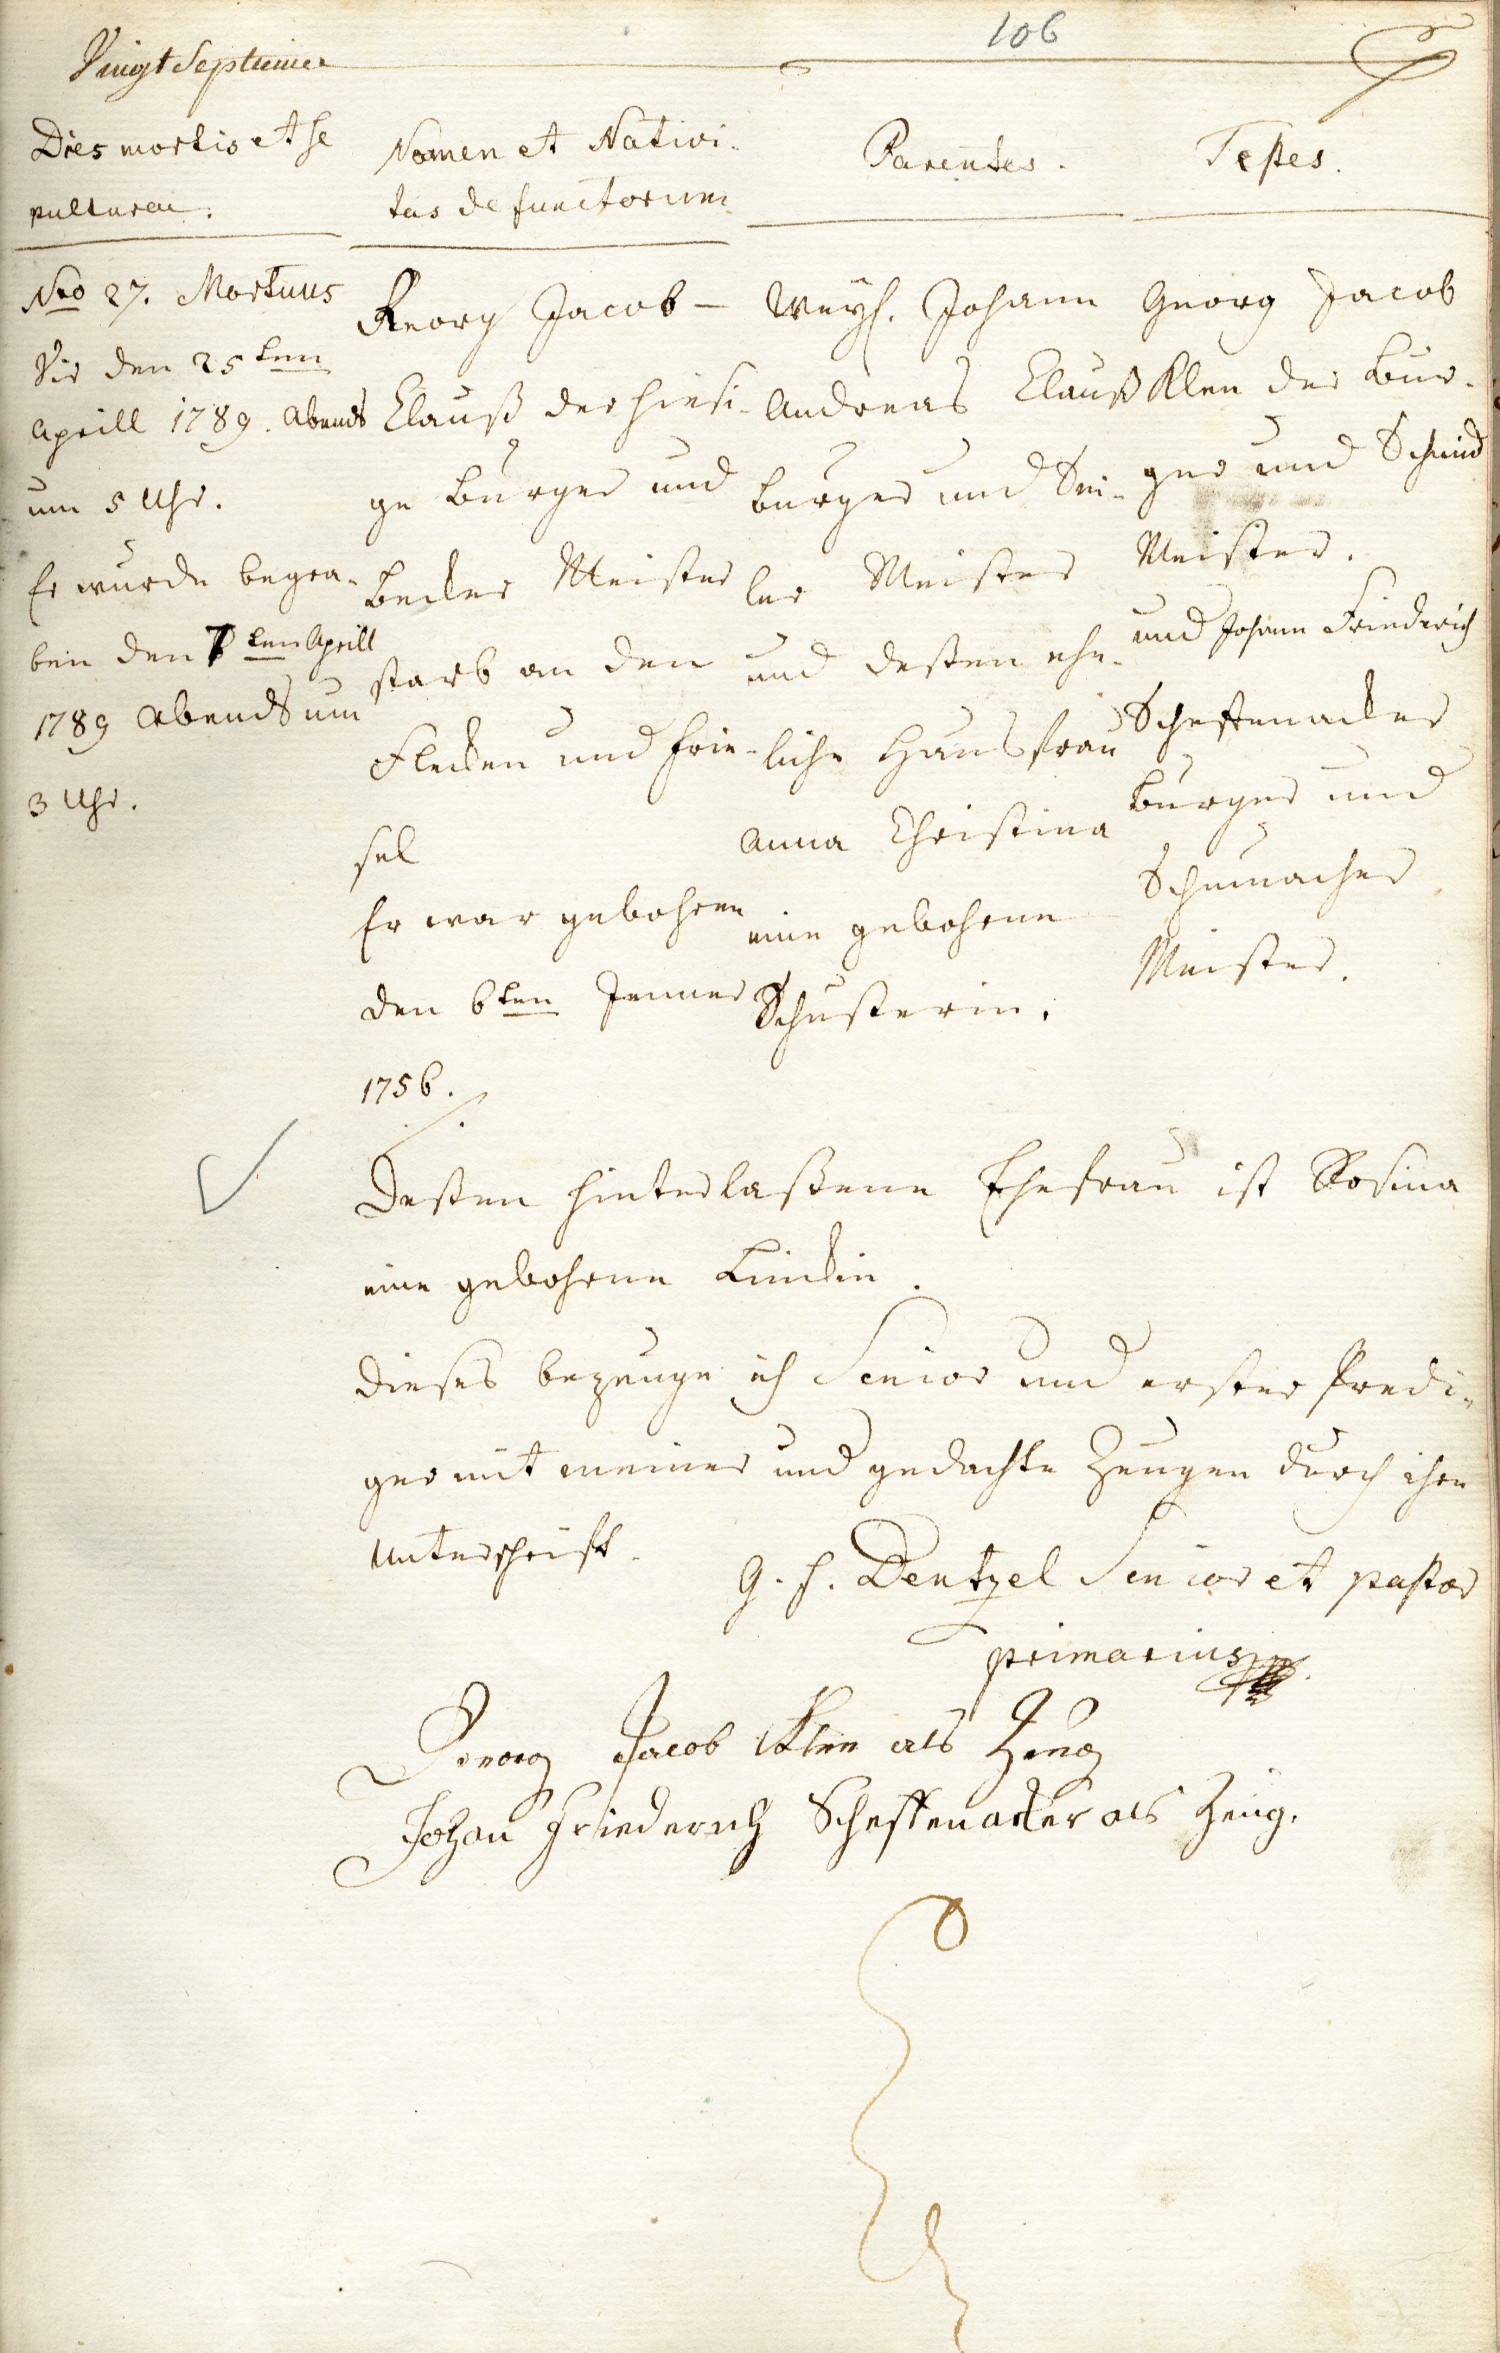 106
Vingt Septieme
Dies mortis et se
pulturae.
No 27. Mortuus
Vir den 25ten
Aprill 1789. Abends
um 5 Uhr.
Er wurde begra-
ben den ten Aprill
1789 Abends um
3 Uhr.
Nomen et Nativi-
tas defunctorum
Georg Jacob
Clauß der hiesi-
ge Burger und
Becker Meister
starb an den
Flecken und Frie-
sel
Er war gebohren
den 6ten Jenner
1756.
Parentes.
Weyl. Johann
Andreas Clauß
Burger und Sei-
ler Meister
und deßen ehe-
liche Hausfrau
Anna Christina
eine gebohrne
Schusterin.
Testes.
Georg Jacob
Klen der Bur-
ger und Schmid
Meister.
und Johann Friederich
Scheffenacker
Burger und
Schumacher
Meister.
Deßen hinterlaßene Ehefrau ist Rosina
eine gebohrne Linckin.
Dieses bezeuge ich Senior und erster Predi-
ger mit meiner und gedachte Zeugen durch ihre
Unterschrift.
G. F. Dentzel Senior et pastor
primarius
Georg Jacob Klen als Zeug
Johan Friederich Scheffenacker als Zeug.